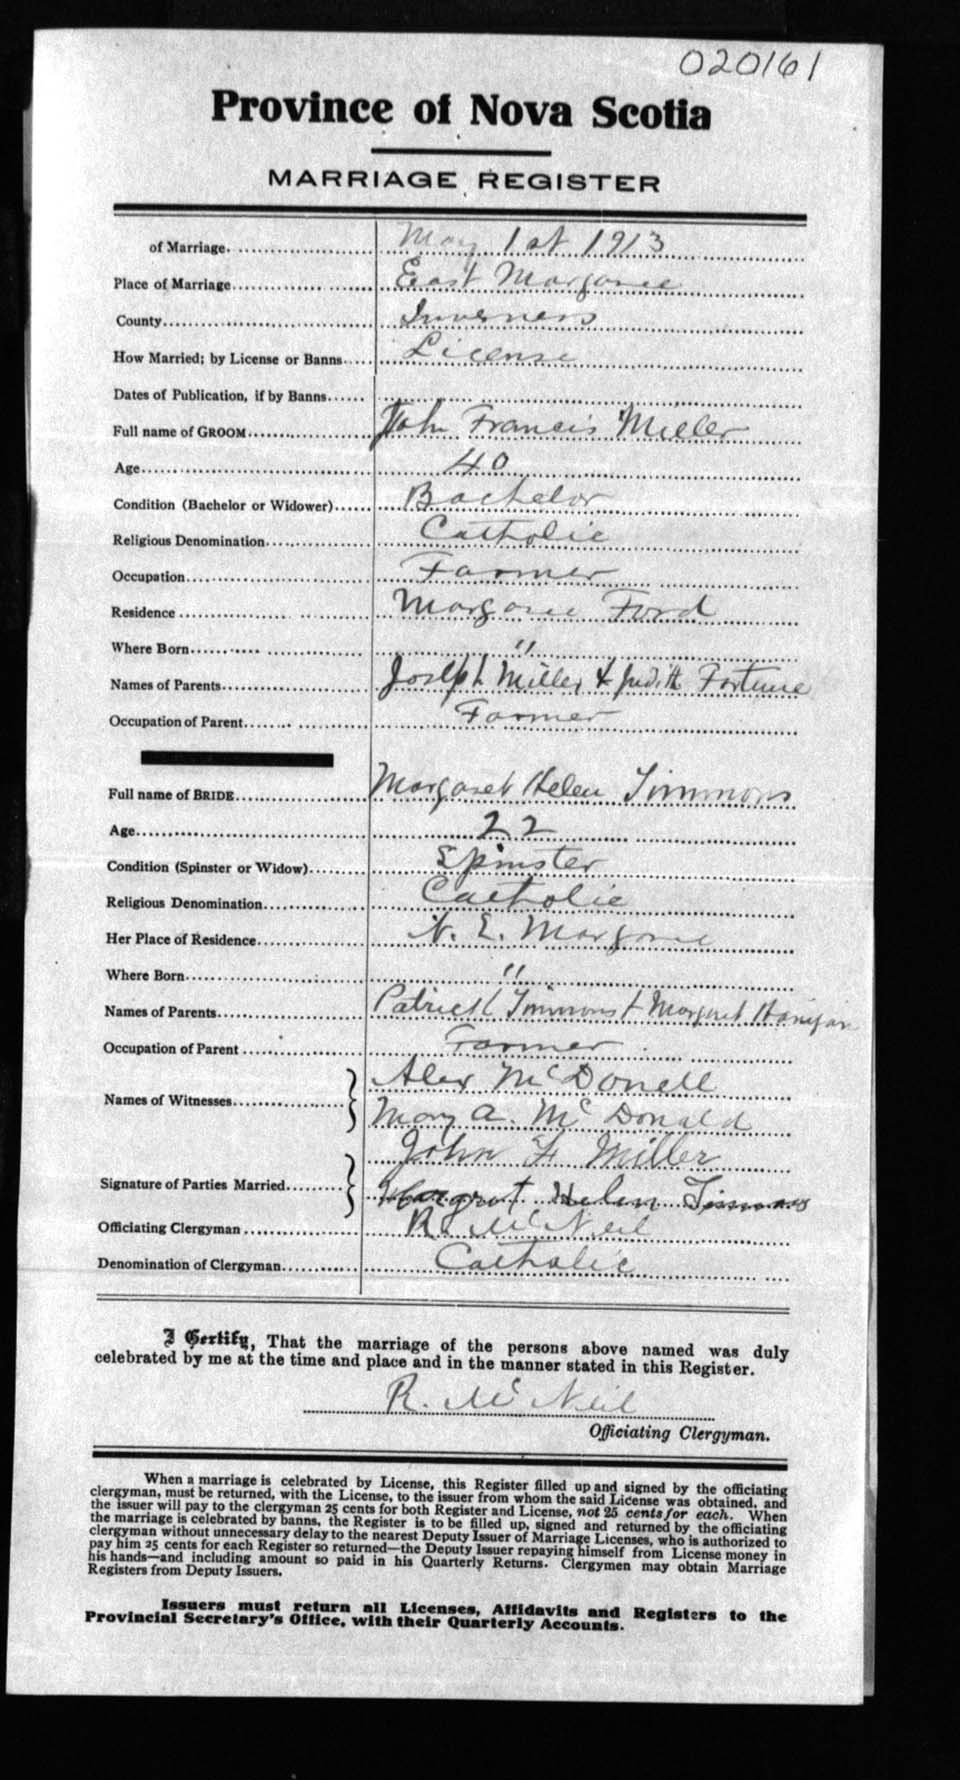 020161
Province of Nova Scotia
MARRIAGE REGISTER
of Marriage. May 1st 1913
Place of Marriage East Margaree
County Inverness
How Married; by License or Banns License
Dates of Publication, if by Banns
Full name of GROOM John Francis Miller
Age 40
Condition (Bachelor or Widower) Bachelor
Religious Denomination Catholic
Occupation Farmer
Residence Margaree Ford
Where Born "
Names of Parents Joseph Miller & Judith Fortune
Occupation of Parent Farmer
Full name of BRIDE Margaret Helen Timmons
Age 22
Condition (Spinster or Widow) Spinster
Religious Denomination Catholic
Her Place of Residence N. E. Margaree
Where Born "
Names of Parents Patrick Timmons & Margaret
Occupation of Parent Farmer
Alex McDonell
Names of Witnesses
Mary A. McDonald
John F Miller
Signature of Parties Married
Margret Helen Timmons
Officiating Clergyman R. McNeil
Denomination of Clergyman Catholic
I Certify, That the marriage of the persons above named was duly
celebrated by me at the time and place and in the manner stated in this Register.
R. McNeil
Officiating Clergyman.
When a marriage is celebrated by License, this Register filled up and signed by the officiating
clergyman, must be returned, with the License, to the issuer from whom the said License was obtained, and
the issuer will pay to the clergyman 25 cents for both Register and License, not 25 cents for each. When
the marriage is celebrated by banns, the Register is to be filled up, signed and returned by the officiating
clergyman without unnecessary delay to the nearest Deputy Issuer of Marriage Licenses, who is authorized to
pay him 25 cents for each Register so returned—the Deputy Issuer repaying himself from License money in
his hands—and including amount so paid in his Quarterly Returns. Clergymen may obtain Marriage
Registers from Deputy Issuers.
Issuers must return all Licenses, Affidavits and Registers to the
Provincial Secretary's Office, with their Quarterly Accounts.